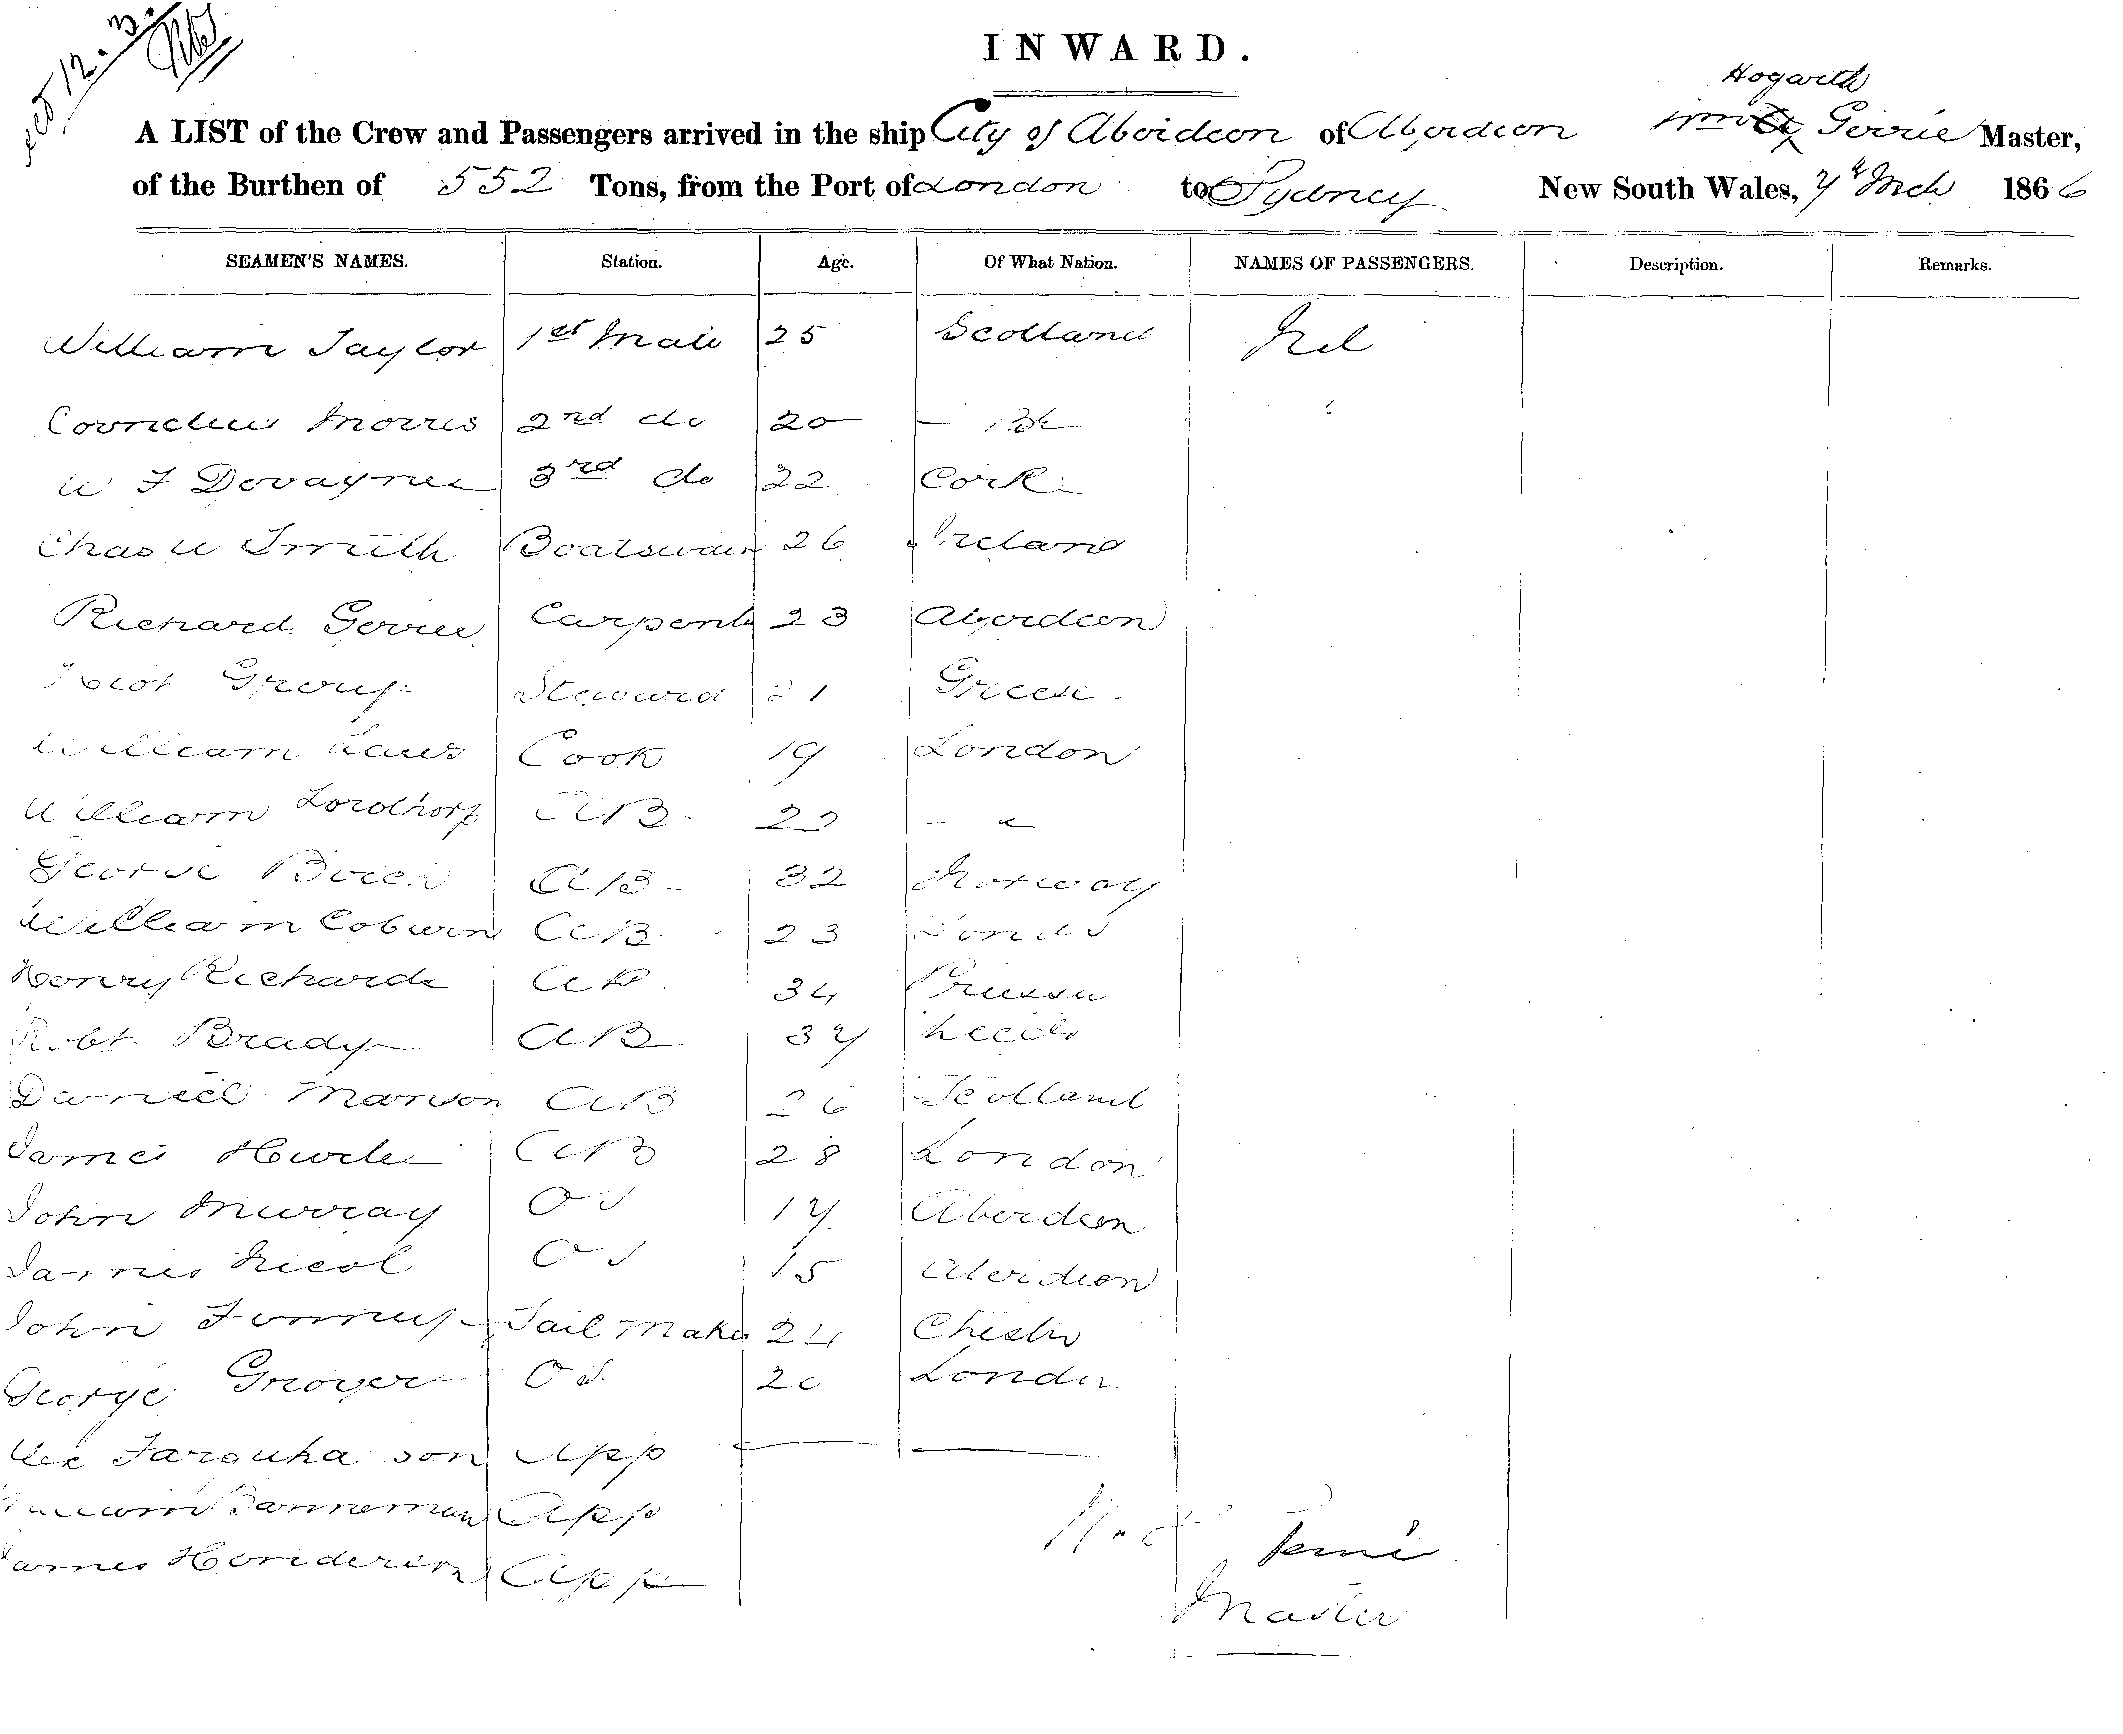 INWARD.
Hogarth
A LIST of the Crew and Passengers arrived in the ship City of Aberdeen of Aberdeen Gerrie Master,
of the Burthen of 552 Tons, from the Port of London to Sydney New South Wales, 7th Mch 1866
SEAMEN'S NAMES. Station. Age. Of What Nation. NAMES OF PASSENGERS. Description. Remarks.
William Taylor 1st Mate 25 Scotland Nil
Cornelius Morris 2nd do 20
W F Devaynes 3rd do 22 Cork
Chas W Smith Boatswain 26 Ireland
Richard Gerrie Carpenter 23 Aberdeen
Steward 21 Greece
William Laws Cook 19 London
William AB 22 - "
George AB 32 Norway
William Coburn AB 23 London
Henry Richards AB 34 Prussia
Robt Brady AB 37 Leeds
Daniel Manson AB 26 Scotland
James AB 28 London
John Murray OS 17 Aberdeen
James Nicol OS 15 Aberdeen
John Sail Maker 24 Chester
George OS 20 London
Farquharson App
William Bannerman App
James Henderson App
Gerrie
Master